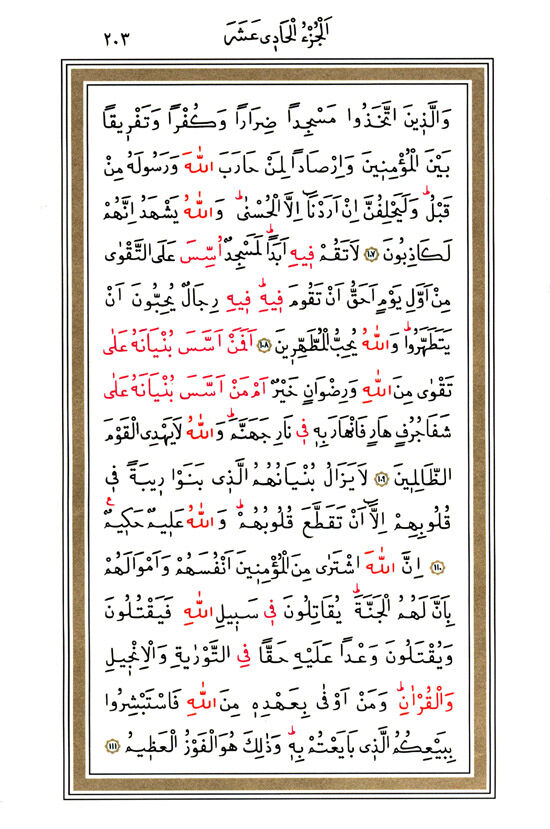 اَلْجُزْءُ الْحَادِى عَشَرَ ٢٠٣
وَالَّذِينَ اتَّخَذُوا مَسْجِداً ضِرَاراً وَكُفْراً وَتَفْرِيقاً
بَيْنَ الْمُؤْمِنِينَ وَاِرْصَاداً لِمَنْ حَارَبَ اللّٰهَ وَرَسُولَهُ مِنْ
قَبْلُۜ وَلَيَحْلِفُنَّ اِنْ اَرَدْنَٓا اِلَّا الْحُسْنٰىۜ وَاللّٰهُ يَشْهَدُ اِنَّهُمْ
لَكَاذِبُونَ ﴿١٠٧﴾ لَا تَقُمْ فِيهِ اَبَداًۜ لَمَسْجِدٌ اُسِّسَ عَلَى التَّقْوٰى
مِنْ اَوَّلِ يَوْمٍ اَحَقُّ اَنْ تَقُومَ فِيهِۜ فِيهِ رِجَالٌ يُحِبُّونَ اَنْ
يَتَطَهَّرُواۜ وَاللّٰهُ يُحِبُّ الْمُطَّهِّرِينَ ﴿١٠٨﴾ اَفَمَنْ اَسَّسَ بُنْيَانَهُ عَلٰى
تَقْوٰى مِنَ اللّٰهِ وَرِضْوَانٍ خَيْرٌ اَمْ مَنْ اَسَّسَ بُنْيَانَهُ عَلٰى
شَفَا جُرُفٍ هَارٍ فَانْهَارَ بِهِ فِي نَارِ جَهَنَّمَۜ وَاللّٰهُ لَا يَهْدِى الْقَوْمَ
الظَّالِمِينَ ﴿١٠٩﴾ لَا يَزَالُ بُنْيَانُهُمُ الَّذِى بَنَوْا رِيبَةً فِي
قُلُوبِهِمْ اِلَّٓا اَنْ تَقَطَّعَ قُلُوبُهُمْۜ وَاللّٰهُ عَلِيمٌ حَكِيمٌ۟
﴿١١٠﴾ اِنَّ اللّٰهَ اشْتَرٰى مِنَ الْمُؤْمِنِينَ اَنْفُسَهُمْ وَاَمْوَالَهُمْ
بِاَنَّ لَهُمُ الْجَنَّةَۜ يُقَاتِلُونَ فِي سَبِيلِ اللّٰهِ فَيَقْتُلُونَ
وَيُقْتَلُونَ وَعْداً عَلَيْهِ حَقًّا فِي التَّوْرٰيةِ وَالْاِنْجِيلِ
وَالْقُرْاٰنِۜ وَمَنْ اَوْفٰى بِعَهْدِهِ مِنَ اللّٰهِ فَاسْتَبْشِرُوا
بِبَيْعِكُمُ الَّذِى بَايَعْتُمْ بِهِۜ وَذٰلِكَ هُوَ الْفَوْزُ الْعَظِيمُ ﴿١١١﴾